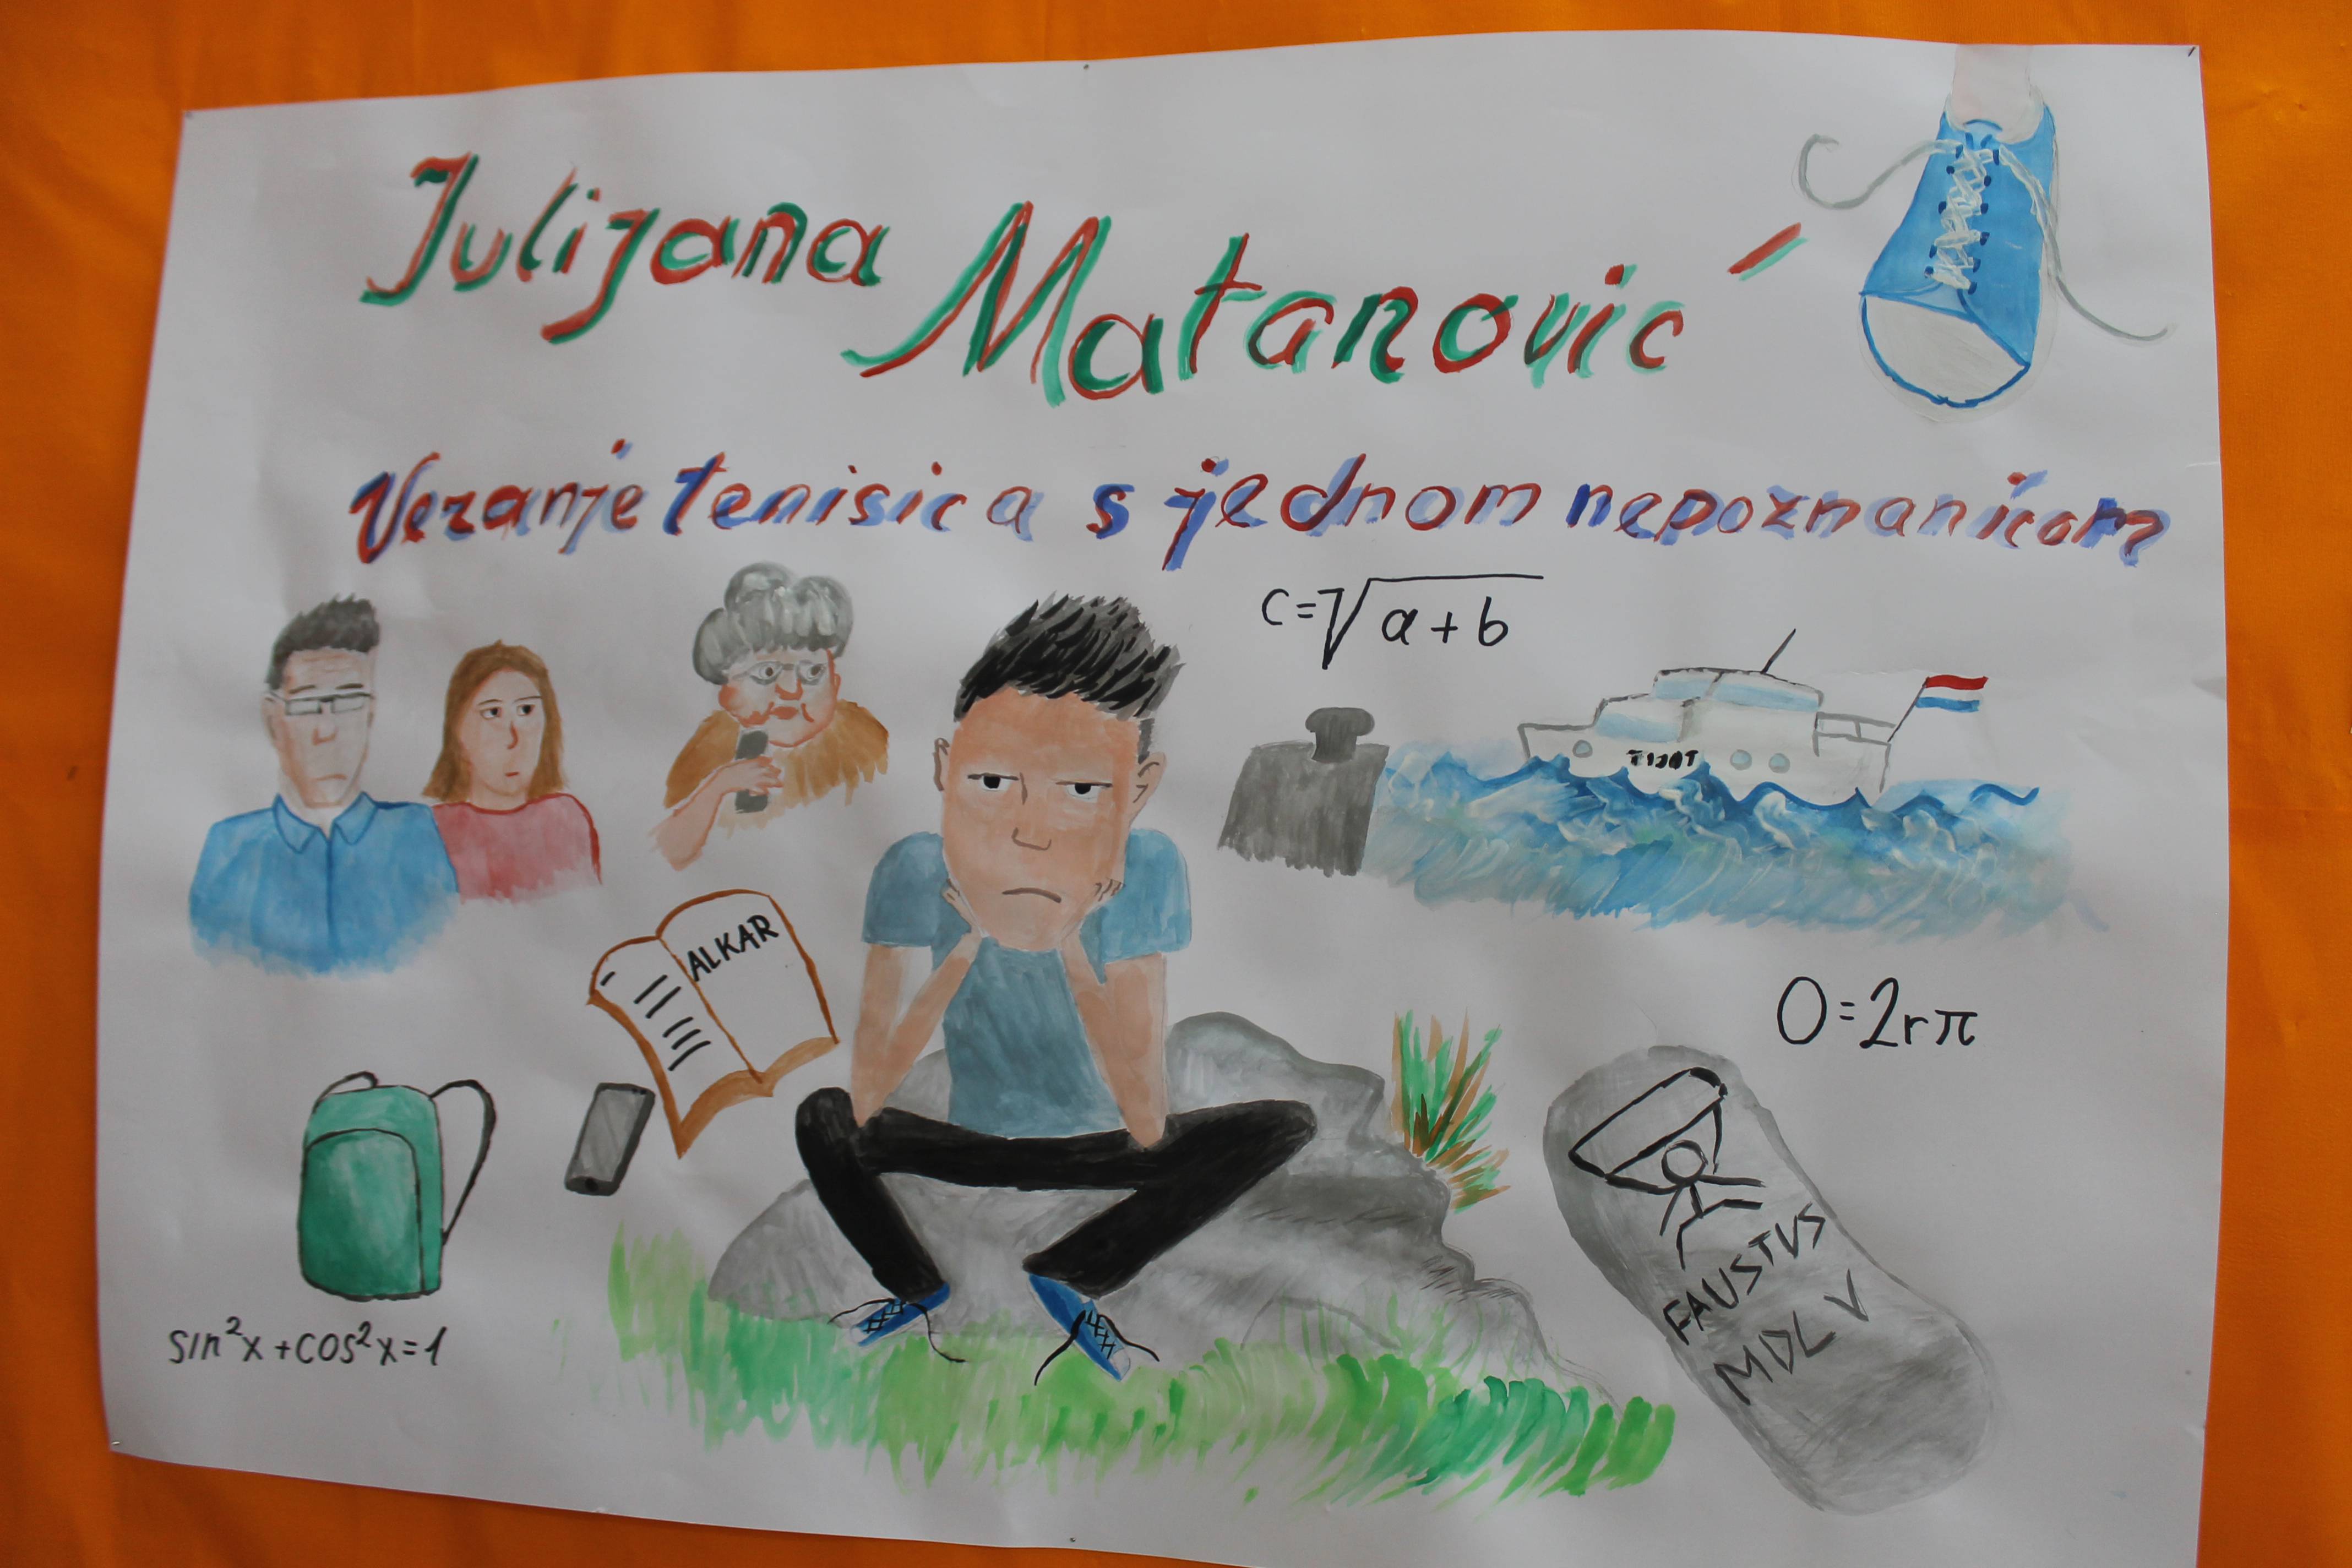 Julijana
Matanović
Vezanje tenisica s jednom nepoznanicom
c=√a+b
TIJAT
ALKAR
O=2rπ
FAUSTUS
MDLV
sin²x+cos²x=1